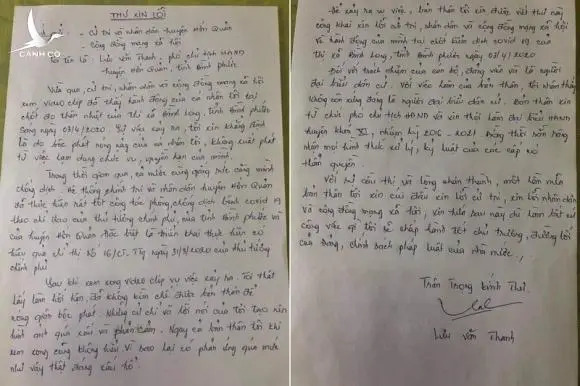 THƯ XIN LỖI
Kính gửi: - Cử tri và nhân dân huyện Hớn Quản
- Cộng đồng mạng xã hội
Tôi tên là: Lưu Văn Thanh, phó chủ tịch HĐND
huyện Hớn Quản, tỉnh Bình Phước
Vừa qua, cử tri, nhân dân và cộng đồng mạng xã hội
xem video clip đã thấy hành động của cá nhân tôi tại
chốt đo thân nhiệt của thị xã Bình Long, tỉnh Bình Phước
sáng ngày 03/4/2020. Sự việc xảy ra, tôi xin khẳng định
là do bộc phát nóng nảy của cá nhân tôi, không xuất phát
từ việc lạm dụng chức vụ, quyền hạn của mình.
Trong thời gian qua, cả nước cùng gồng sức căng mình
chống dịch. Hệ thống chính trị và nhân dân huyện Hớn Quản
đã thực hiện rất tốt công tác phòng, chống dịch bệnh covid 19
theo chỉ đạo của thủ tướng chính phủ, của tỉnh Bình Phước và
của huyện Hớn Quản. Đặc biệt là triển khai thực hiện có
hiệu quả chỉ thị số 16/CT-TTg ngày 31/3/2020 của thủ tướng
chính phủ
Sau khi xem xong video clip vụ việc xảy ra. Tôi thật
lấy làm hối hận, đã không kiềm chế được bản thân để
nóng giận bộc phát. Những cử chỉ và lời nói của tôi tạo nên
hình ảnh quá xấu và phản cảm. Ngay cả bản thân tôi khi
xem xong cũng không hiểu. Vì sao lại có phản ứng quá mức
như vậy thật đáng xấu hổ.
Để xảy ra vụ việc, bản thân tôi xin được viết thư này
công khai xin lỗi cử tri, nhân dân và cộng đồng mạng xã hội
về hành động của mình tại chốt kiểm dịch covid 19 của
thị xã Bình Long, tỉnh Bình Phước ngày 03/4/2020
Đối với trách nhiệm của cán bộ, đảng viên và là người
đại biểu dân cử. Với việc làm của bản thân, tôi nhận thấy
không còn xứng đáng là người đại biểu dân cử. Bản thân xin
từ chức phó chủ tịch HĐND và xin thôi làm đại biểu HĐND
huyện khoá XI, nhiệm kỳ 2016 - 2021. Đồng thời sẵn sàng
nhận mọi hình thức xử lý, kỷ luật của các cấp có
thẩm quyền.
Với sự cầu thị và lòng chân thành, một lần nữa
bản thân tôi xin cúi đầu xin lỗi cử tri, xin lỗi nhân dân
và cộng đồng mạng xã hội, xin hứa sau này dù làm bất cứ
công việc gì tôi sẽ chấp hành tốt chủ trương, đường lối
của đảng, chính sách pháp luật của nhà nước./.
Trân Trọng kính Thư.
Lưu Văn Thanh
CANHCO